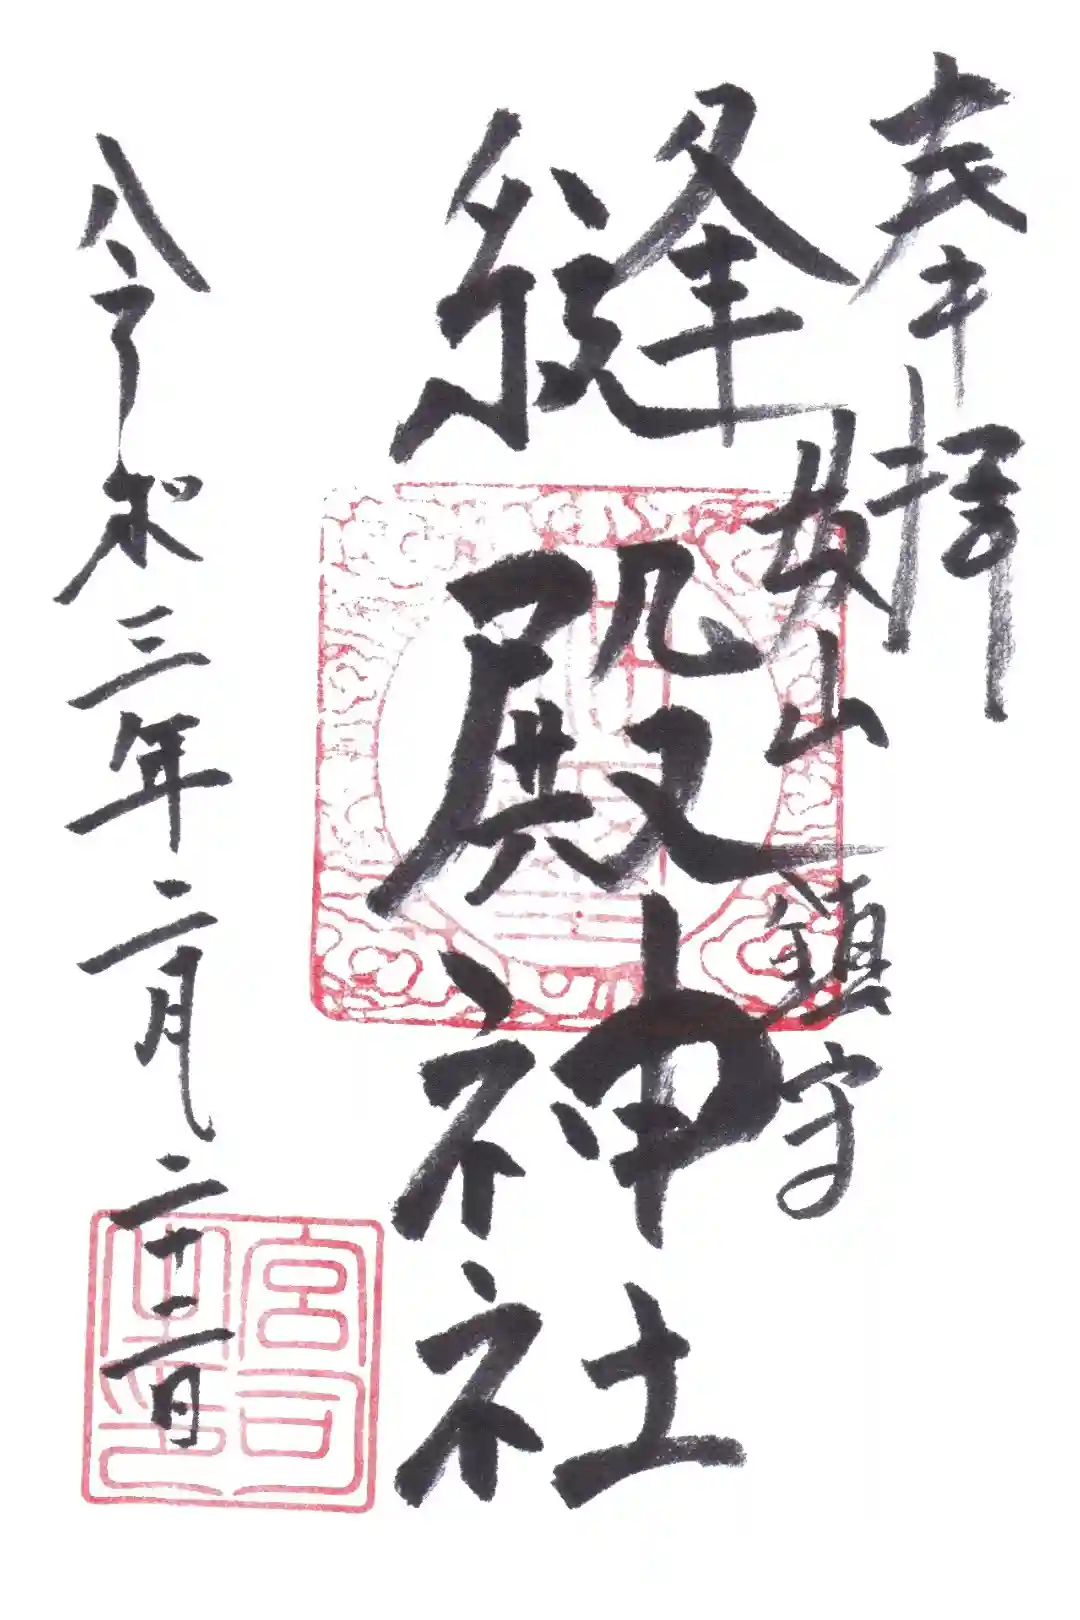 奉拝
奴山鎮守
縫殿神社
令和三年二月二十二日
宮司之印